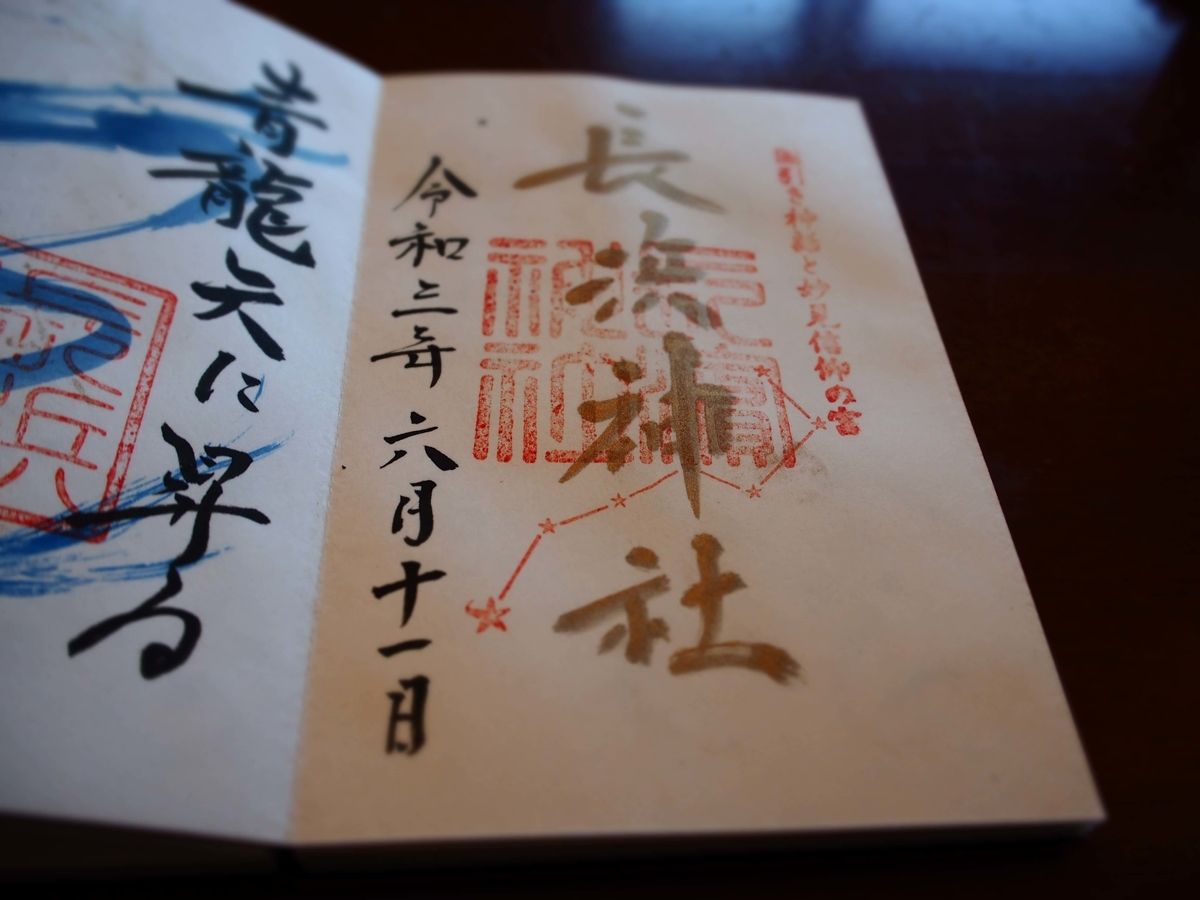 国引き神話と妙見信仰の宮
長浜神社
令和三年六月十一日
青龍天に昇る